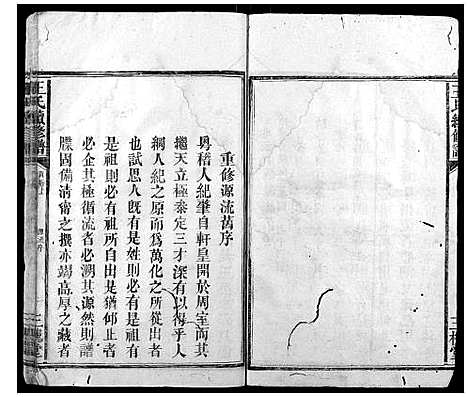 重修源流舊序
粵稽人紀肇自軒皇開於周室而其
繼天立極泰定三才深有以得乎人
綱人紀之原而為萬化之所從出者
也試思人旣有是姓則必有是祖有
是祖則必有祖所自出是猶仰止者
必企其極循流者必溯其源然則譜
牒固備清甯之撰亦竭高厚之藏者
王氏續修譜
三槐堂
王氏續修譜
三槐堂